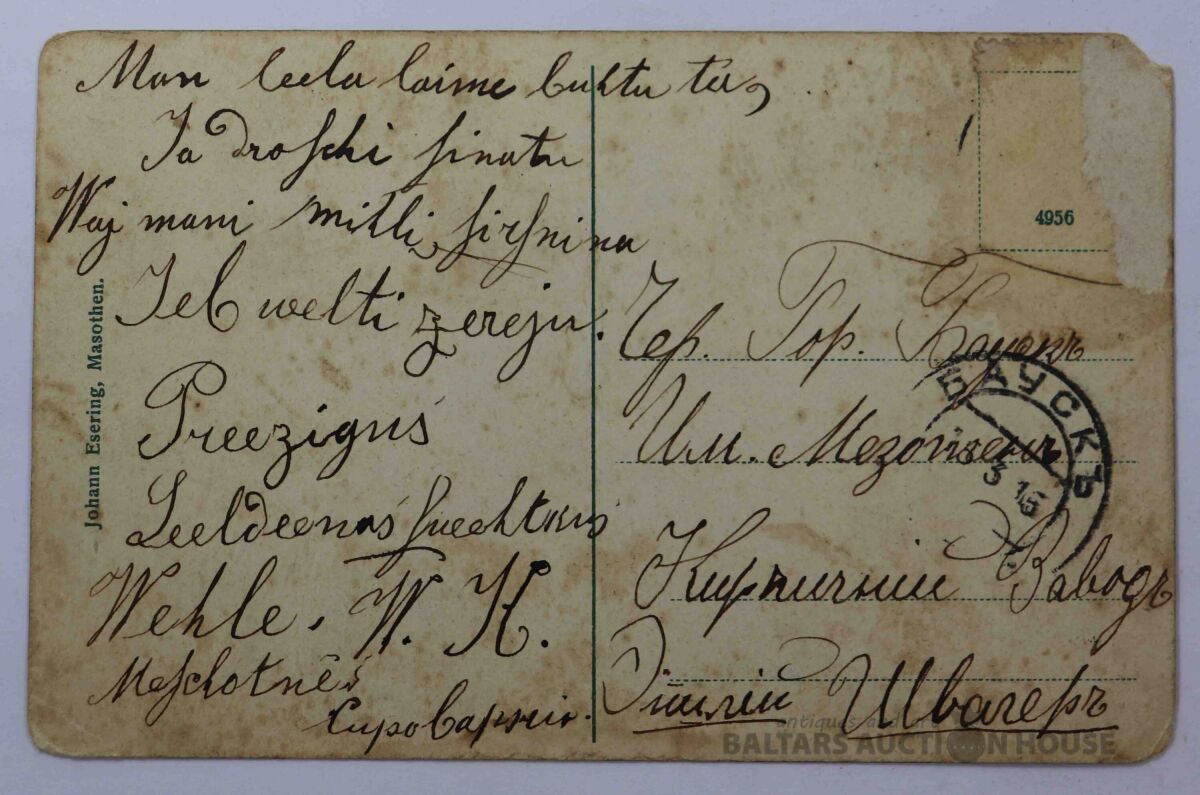 Man leela laime buhtu ta,
Ja droschi sinatu
Waj mani mihli sirsnina
Teb welti zereju.
Preezigus
Leeldeenas swehtkus
Wehle. W. K.
Meschotnês
Сыроварнiю.
Johann Esering, Masothen.
4956
Чер. Гор. Баускъ
Им. Мезотенъ
Кирпичнии Заводъ
Эмилiи Швагеръ
БАУСКЪ
3 16
antiques
BALTARS AUCTION HOUSE